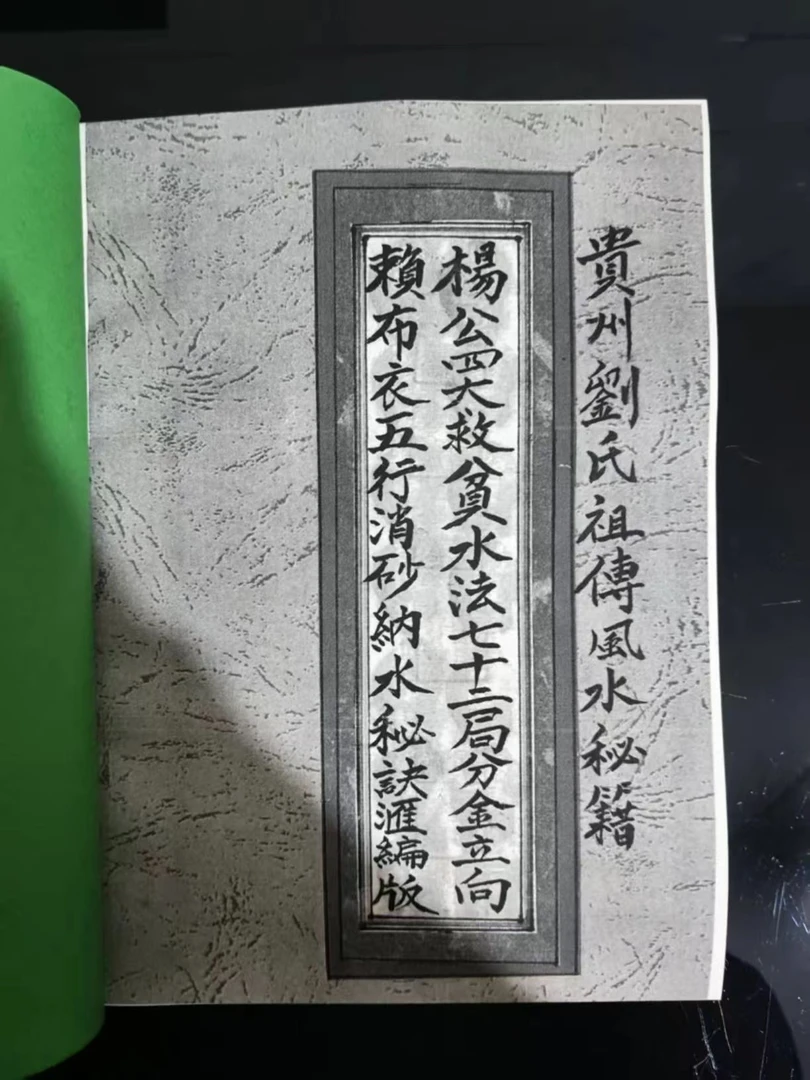 貴州劉氏祖傳風水秘籍
楊公四大救貧水法七十二局分金立向
賴布衣五行消砂納水秘訣滙編版